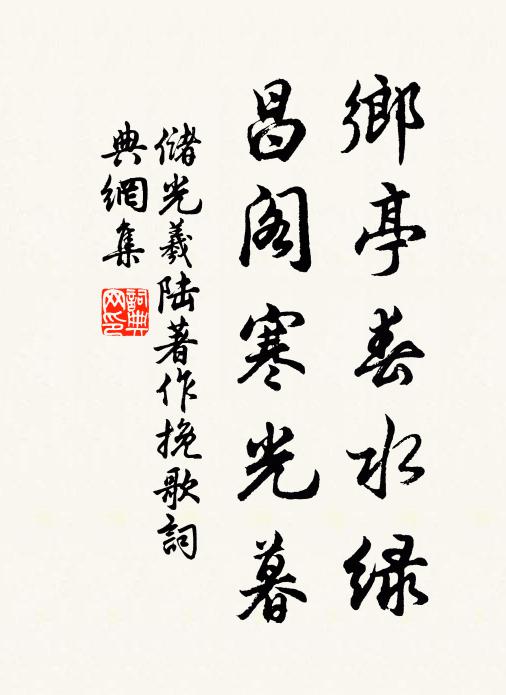 鄉亭春水綠
昌閣寒光暮
儲光羲陸著作挽歌詞
典網集
詞典網印